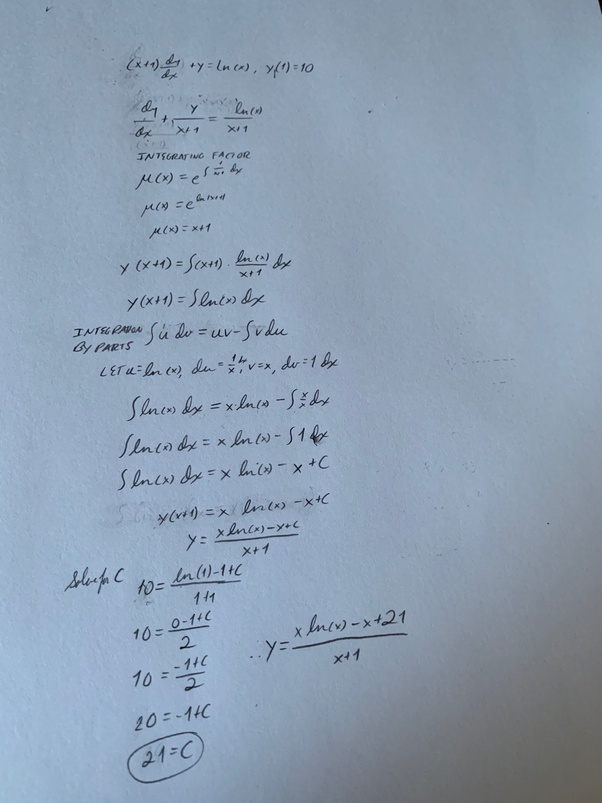 (x+1) dy/dx + y = ln(x), y(1)=10
dy/dx + y/x+1 = ln(x)/x+1
INTEGRATING FACTOR
μ(x) = e^∫ 1/x+1 dx
μ(x) = e^ln|x+1|
μ(x) = x+1
y(x+1) = ∫(x+1) · ln(x)/x+1 dx
y(x+1) = ∫ln(x) dx
INTEGRATION BY PARTS ∫u dv = uv - ∫v du
LET u = ln(x), du = 1/x dx, v = x, dv = 1 dx
∫ln(x) dx = x ln(x) - ∫x/x dx
∫ln(x) dx = x ln(x) - ∫1 dx
∫ln(x) dx = x ln(x) - x + C
y(x+1) = x ln(x) - x + C
y = x ln(x) - x + C/x+1
Solve for C
10 = ln(1) - 1 + C/1+1
10 = 0 - 1 + C/2
10 = -1 + C/2
20 = -1 + C
21 = C
∴ y = x ln(x) - x + 21/x+1